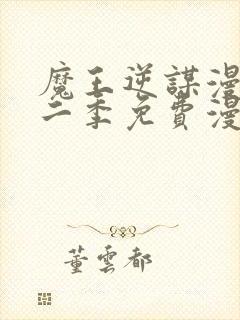 魔王逆謀漫
二季免費漫
董雲都